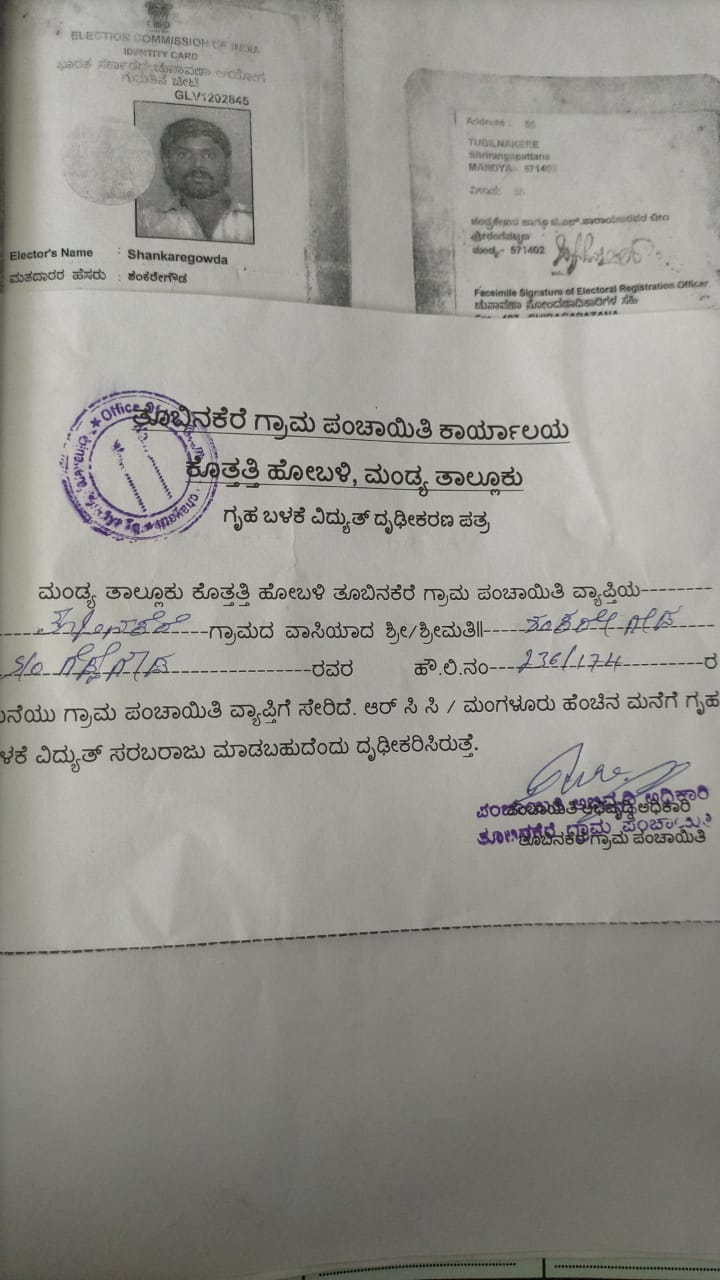 ELECTION COMMISSION OF INDIA
IDENTITY CARD
ಭಾರತ ಸರ್ಕಾರದ ಚುನಾವಣಾ ಆಯೋಗ
ಗುರುತಿನ ಚೀಟಿ
GLV1202845
Elector's Name : Shankaregowda
ಮತದಾರರ ಹೆಸರು : ಶಂಕರೇಗೌಡ
Address : 56
TUBILNAKERE
Shrirangapattana
MANDYA 57140
571402
Facsimile Signature of Electoral Registration Officer
ಚುನಾವಣಾ ನೋಂದಣಾಧಿಕಾರಿಗಳ ಸಹಿ
Office
ತೂಬಿನಕೆರೆ ಗ್ರಾಮ ಪಂಚಾಯಿತಿ ಕಾರ್ಯಾಲಯ
ಕೊತ್ತತ್ತಿ ಹೋಬಳಿ, ಮಂಡ್ಯ ತಾಲ್ಲೂಕು
ಗೃಹ ಬಳಕೆ ವಿದ್ಯುತ್ ದೃಢೀಕರಣ ಪತ್ರ
ಮಂಡ್ಯ ತಾಲ್ಲೂಕು ಕೊತ್ತತ್ತಿ ಹೋಬಳಿ ತೂಬಿನಕೆರೆ ಗ್ರಾಮ ಪಂಚಾಯಿತಿ ವ್ಯಾಪ್ತಿಯ--------
-----ತೂಬಿನಕೆರೆ----ಗ್ರಾಮದ ವಾಸಿಯಾದ ಶ್ರೀ/ಶ್ರೀಮತಿ||-----ಶಂಕರೇಗೌಡ----
S/o ----------------ರವರ ಹೌ.ಲಿ.ನಂ----236/174------------ರ
ನೆಯು ಗ್ರಾಮ ಪಂಚಾಯಿತಿ ವ್ಯಾಪ್ತಿಗೆ ಸೇರಿದೆ. ಆರ್ ಸಿ ಸಿ / ಮಂಗಳೂರು ಹೆಂಚಿನ ಮನೆಗೆ ಗೃಹ
ಳಕೆ ವಿದ್ಯುತ್ ಸರಬರಾಜು ಮಾಡಬಹುದೆಂದು ದೃಢೀಕರಿಸಿರುತ್ತೆ.
ಪಂಚಾಯಿತಿ ಅಭಿವೃದ್ಧಿ ಅಧಿಕಾರಿ
ತೂಬಿನಕೆರೆ ಗ್ರಾಮ ಪಂಚಾಯಿತಿ